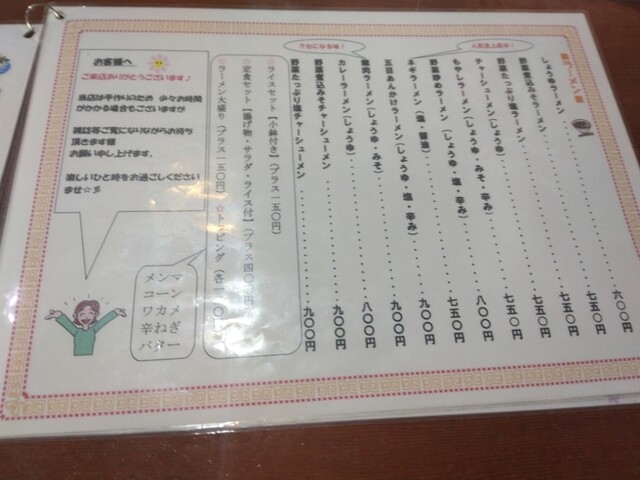 しょうゆラーメン 六〇〇円
野菜煮込みそラーメン 七五〇円
野菜たっぷり塩ラーメン 七五〇円
チャーシューメン(しょうゆ・みそ・辛み) 七五〇円
もやしラーメン(しょうゆ・塩・辛み) 七五〇円
野菜炒めラーメン(しょうゆ・塩・辛み) 八〇〇円
ネギラーメン(塩・醤油) 七五〇円
五目あんかけラーメン(しょうゆ・塩・辛み) 九〇〇円
ラーメン(しょうゆ・みそ) 九〇〇円
カレーラーメン(しょうゆ) 八〇〇円
野菜煮込みそチャーシューメン 九〇〇円
野菜たっぷり塩チャーシューメン 九〇〇円
人気急上昇中!
クセになる味!
☆ライスセット【小鉢付き】(プラス一五〇円)
☆定食セット【揚げ物・サラダ・ライス付】(プラス四〇〇円)
☆ラーメン大盛り(プラス一五〇円) ☆トッピング(各一〇〇円)
メンマ
コーン
ワカメ
辛ねぎ
バター
お客様へ
ご来店ありがとうございます♪
お時間
がかかる場合もございますが
雑誌等ご覧になりながらお待ち
頂きます様
お願い申し上げます。
楽しいひと時をお過ごしください
ませ☆彡